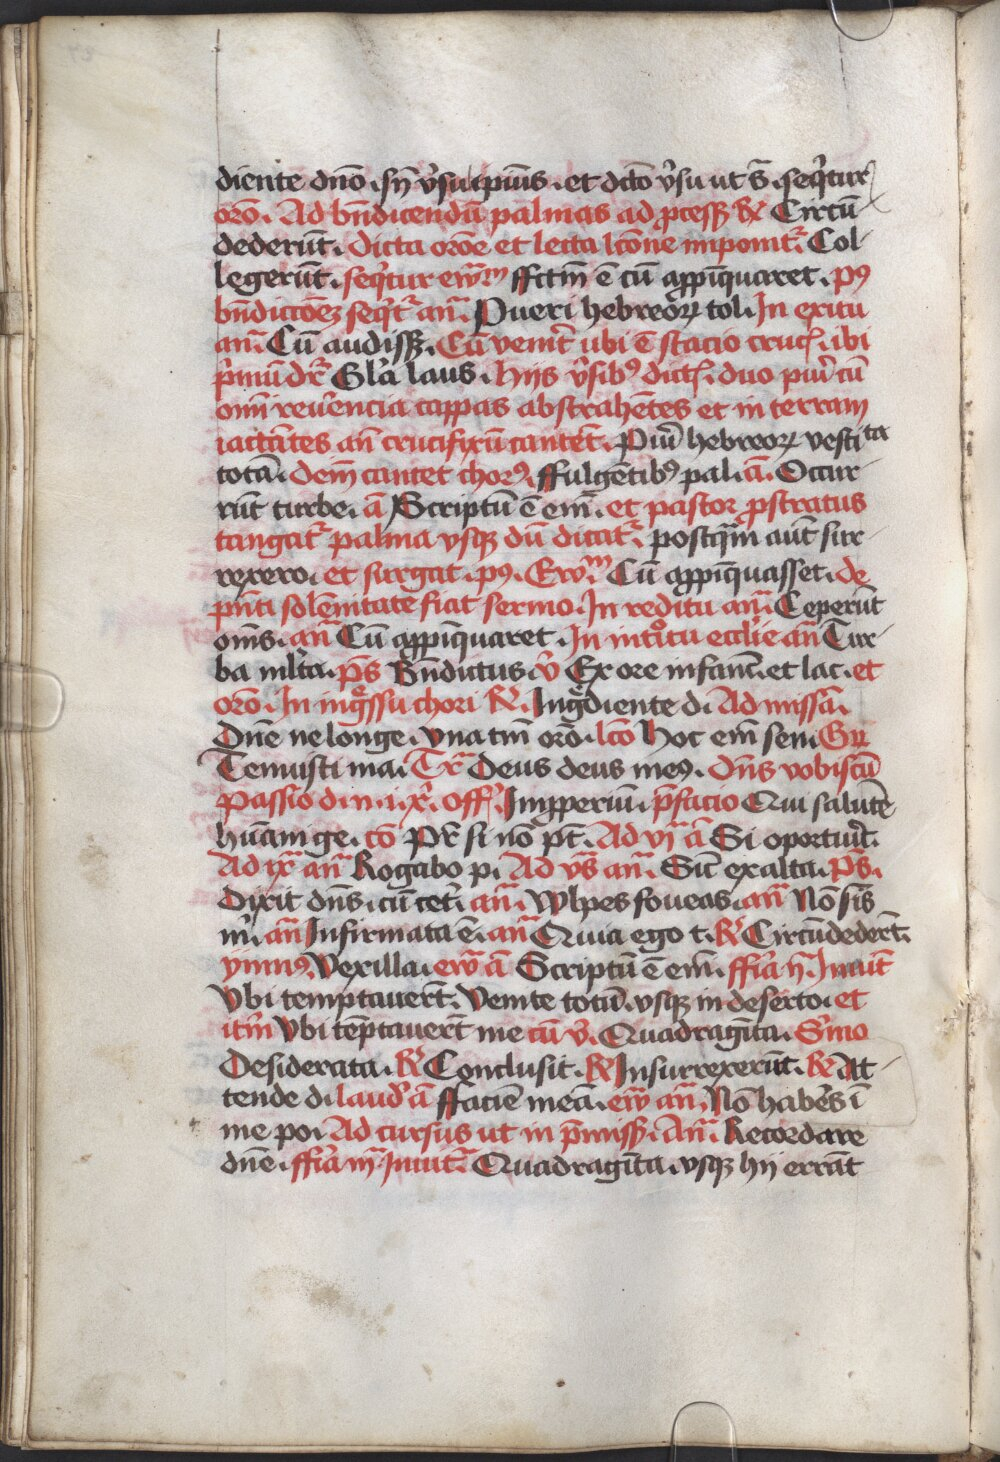 diente dn̄o · sn̄ v̓su ip̄ius · et dc̄to v̓su ut s̄ · seq̓tur
oro᷑ · Ad bn̄dicendū palmas ad ꝓcessꝫ ℞ Circū
dederūt · dicta oro᷑e et lecta lc̄one imponit᷑ Col
legerūt · seq̓tur ew̄m ffctm̄ ē cū appīquaret · pꝰ
bn̄dictōeꝫ seqt᷑ an̄ · Pueri hebreoꝝ tol · In exitu
an̄ · Cū audissꝫ · Cū venit᷑ ubi ē stacio cruc̓ · ibi
p̓mū dr̄ Gl̓a laus · Hijs v̓sibꝰ dict̓ · duo pu̓i cū
om̄i reu̓encia cappas abstrahētes et in terram
iactātes an̄ crucifixū cantēt · Pu̓i hebreoꝝ vestita
totā · dem̄ cantet chorꝰ · ffulgētibꝰ pal · ā · Occur
rūt turbe · ā Scriptū ē em̄ · et pastor ꝓstratus
tangat᷑ palma vsqꝫ dū dicat᷑ · postq̄m aūt sur
rexero · et surgat · pꝰ · Ew̄m Cū appīquasset · de
pn̄ti solēnitate fiat sermo · In reditu an̄ · Ceperūt
om̄s · an̄ Cū appīquaret · In introitu ecclie an̄ Tur
ba ml̓ta · p̄s Bn̄dictus · v̓ Ex ore infanc̄ · et lac · et
oro᷑ · In ingͣssu chori ℞ · Ingͣdiente d · Ad missā ·
Dn̄e ne longe · vna tm̄ oro᷑ · lc̄o Hoc em̄ sen · Gr̄
Tenuisti ma · Tr̄ Deus deus meꝰ · dn̄s vobiscū
Passio d · n · i · x̓ · off̓ · Imꝓperiū · p̄facio Qui salutē
hūani ge · cō Pr̄ si nō pt̄ · Ad vj̄ ā Si oportuit̓ ·
Ad ix̄ an̄ Rogabo p · Ad vs̄ an̄ · Sic̄ exalta · p̄s ·
Dixit dn̄s · cū cet̓ · an̄ · Wlpes foueas · an̄ Nō sis
m̓ · an̄ Infirmata ē · an̄ Quia ego t · ℞ Circūdedert̄ ·
ymnꝰ Vexilla · ew̄ ā Scriptū ē em̄ · ff̓ia ij̄ · Inuit̄
Vbi temptauert̄ · Venite totū · vsqꝫ in deserto · et
itm̄ Vbi tēptauert̄ me cū v̓ · Quadragīta · S̓mo
Desiderata · ℞ Conclusit · ℞ Insurrexerūt · ℞ At
tende d · laud̓ ā ffaciē meā · ew̄ an̄ · Nō haber̓s ī
me po · Ad cursus ut in p̄missꝫ · An̄ · Recordare
dn̄e · ff̓ia iij̄ · Inuit᷑ Quadragīta · vsqꝫ hij errāt